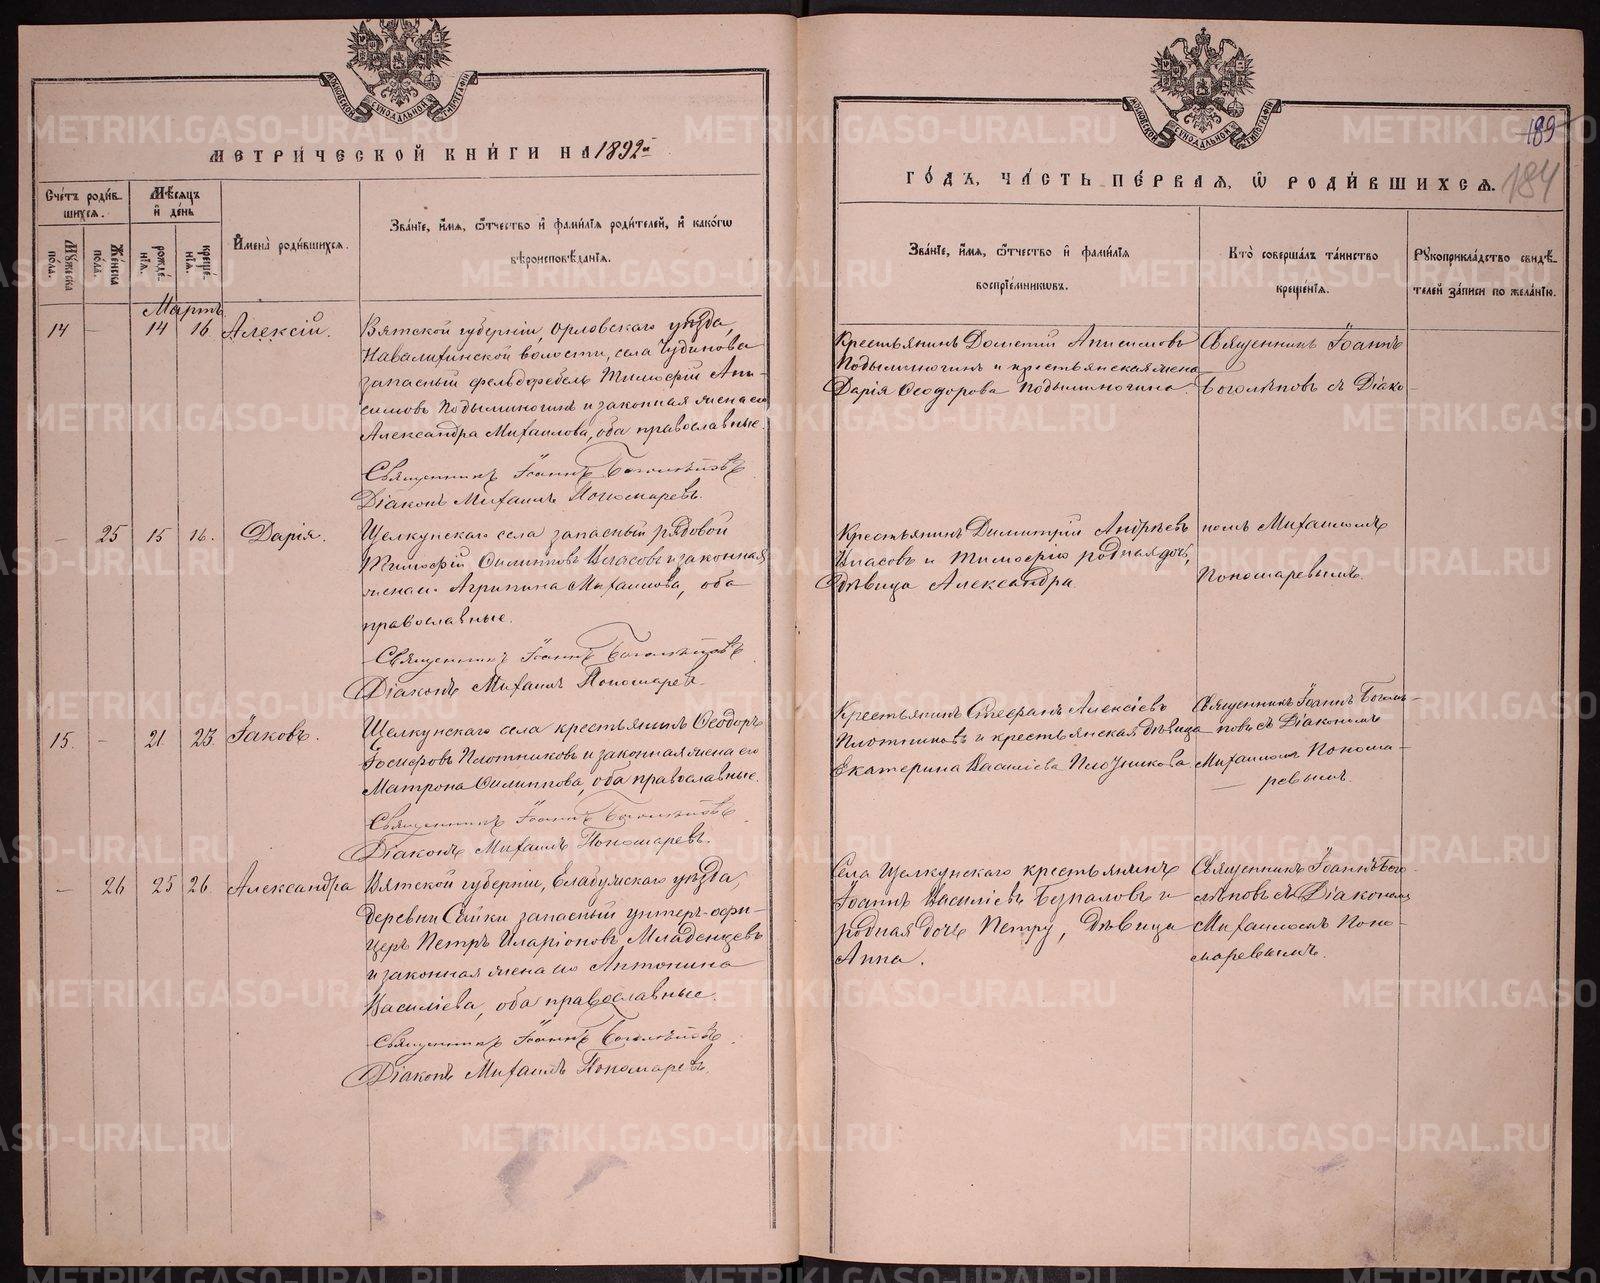 МЕТРИ́ЧЕСКОЙ КНИ́ГИ НА 1892й
Сче́тъ роди́в-
шихсѧ.
Мѣ́сѧцъ
и҆ де́нь
Мꙋ́жеска
по́ла.
Же́нска
по́ла.
рожде́-
нїѧ.
креще́-
нїѧ.
И҆мена̀ роди́вшихсѧ.
Зва́нїе, и҆́мѧ, ѻ҆́тчество и҆ фами́лїѧ роди́телей, и҆ како́гѡ
вѣроисповѣ́данїѧ.
Мартъ.
14 – 14 16 Алексій.
Вятской губерніи, Орловскаго уѣзда,
Навалихинской волости, села Чудинова
запасный фельдфебель Тимофей Ани-
симовъ Подыминогинъ и законная жена его
Александра Михаилова, оба православные.
Священникъ Іоаннъ Боголѣповъ
Діаконъ Михаилъ Пономаревъ.
– 25 15 16. Дарія.
Щелкунскаго села запасный рядовой
Тимофей Филипповъ Власовъ и законная
жена его Агрипина Михаилова, оба
православные.
Священникъ Іоаннъ Боголѣповъ
Діаконъ Михаилъ Пономаревъ.
15. – 21. 23. Іаковъ.
Щелкунскаго села крестьянинъ Ѳеодоръ
Іосифовъ Плотниковъ и законная жена его
Матрона Филиппова, оба православные.
Священникъ Іоаннъ Боголѣповъ
Діаконъ Михаилъ Пономаревъ.
– 26 25 26. Александра
Вятской губерніи, Елабужскаго уѣзда,
деревни Сейки запасный унтеръ-офи-
церъ Петръ Иларіоновъ Младенцевъ
и законная жена его Антонина
Василіева, оба православные.
Священникъ Іоаннъ Боголѣповъ.
Діаконъ Михаилъ Пономаревъ.
ГО́ДЪ, ЧА́СТЬ ПЕ́РВАѦ, Ѡ҆ РОДИ́ВШИХСѦ.
189
184
Зва́нїе, и҆́мѧ, ѻ҆́тчество и҆ фами́лїѧ
воспрїе́мниковъ.
Кто̀ соверша́лъ та́инство
креще́нїѧ.
Рꙋкоприкла́дство свидѣ́-
телей за́писи по жела́нїю.
Крестьянинъ Дометій Анисимовъ
Подыминогинъ и крестьянская жена
Дарія Ѳеодорова Подыминогина.
Священникъ Іоаннъ
Боголѣповъ съ Діако-
Крестьянинъ Димитрій Андреевъ
Власовъ и Тимофею родная дочь,
дѣвица Александра
номъ Михаиломъ
Пономаревымъ.
Крестьянинъ Стефанъ Алексіевъ
Плотниковъ и крестьянская дѣвица
Екатерина Василіева Плотникова.
Священникъ Іоаннъ Боголѣ-
повъ съ Діакономъ
Михаиломъ Понома-
ревымъ.
Села Щелкунскаго крестьянинъ
Іоаннъ Василіевъ Беспаловъ и
родная дочь Петру, дѣвица
Анна.
Священникъ Іоаннъ Бого-
лѣповъ съ Діакономъ
Михаиломъ Поно-
маревымъ.
METRIKI.GASO-URAL.RU